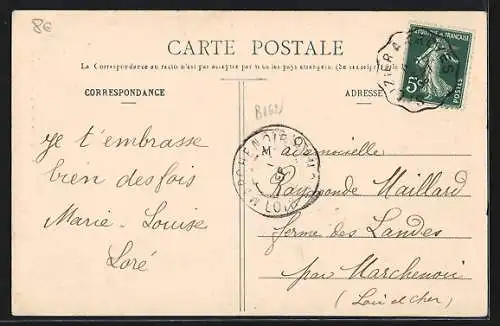 8€
CARTE POSTALE
La Correspondance au recto n'est pas acceptée par tous les pays étrangers. (Se renseigner à la Poste)
CORRESPONDANCE
ADRESSE
5c
POSTES
MARCHENOIR
LOIR
Je t'embrasse
bien des fois
Marie-Louise
Loré
Mademoiselle
Raymonde Maillard
ferme des Landes
par Marchenoir
(Loir et Cher)